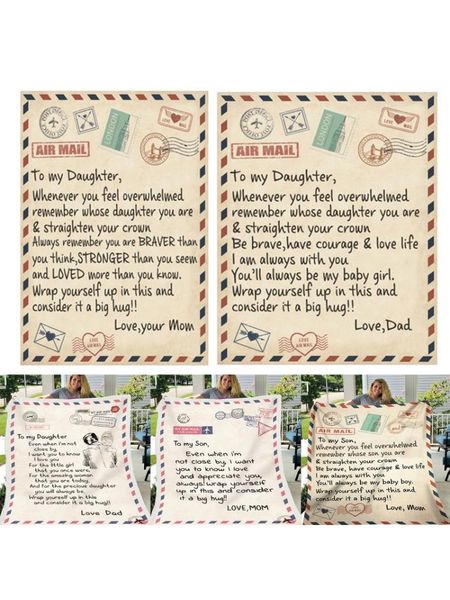 LONDON
AIR MAIL
To my Daughter,
Whenever you feel overwhelmed
remember whose daughter you are
& straighten your crown
Always remember you are BRAVER than
you think,STRONGER than you seem
and LOVED more than you know.
Wrap yourself up in this and
consider it a big hug!!
Love,your Mom
LONDON
AIR MAIL
To my Daughter,
Whenever you feel overwhelmed
remember whose daughter you are
& straighten your crown
Be brave,have courage & love life
I am always with you
You'll always be my baby girl.
Wrap yourself up in this and
consider it a big hug!!
Love,Dad
To my Daughter
Even when i'm not
close by,
I want you to know
I love you
For the little girl
that you once were,
for the amazing woman
that you are today,
And for the precious daughter
you will always be,
Wrap yourself up in this
and consider it a big hug!!
Love Dad
To my Son,
Even when i'm
not close by, I want
you to know I love
and appreciate you,
always! Wrap yourself
up in this and consider
it a big hug!!
LOVE,MOM
AIR MAIL
To my Son,
Whenever you feel overwhelmed
remember whose son you are
& straighten your crown
Be brave, have courage & love life
I am always with you
You'll always be my baby boy.
Wrap yourself up in this and
consider it a big hug!!
Love, Mom